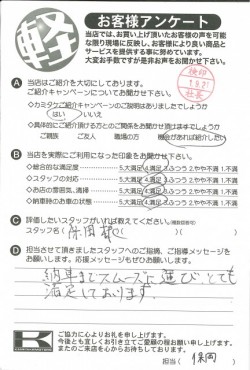 軽
お客様アンケート
当店では、お買い上げ頂いたお客様の声を可能
な限り現場に反映し、お客様により良い商品と
サービスを提供する事に努めています。
大変お手数ですが是非お声をお聞かせ下さい。
検印
社長
A 当店はご紹介を大切にしております。
ご紹介キャンペーンについてお聞かせ下さい?
◇カミタケご紹介キャンペーンのご説明はありましたでしょうか
はい いいえ
◇具体的にご紹介頂ける方とのご関係をお聞かせ頂けますでしょうか
ご親族 ご友人 職場の方 機会があれば紹介したい
B 当店を実際にご利用になった印象をお聞かせ下さい?
◇総合的な満足度 5.大満足 4.満足 3.ふつう 2.やや不満 1.不満
◇スタッフの対応 5.大満足 4.満足 3.ふつう 2.やや不満 1.不満
◇お店の雰囲気、清掃 5.大満足 4.満足 3.ふつう 2.やや不満 1.不満
◇納車時のお車の状態 5.大満足 4.満足 3.ふつう 2.やや不満 1.不満
C 評価したいスタッフがいれば教えてください。(複数回答可)
スタッフ名(
D 担当させて頂きましたスタッフへのご指摘、ご指導メッセージを
お願いします。応援メッセージもぜひお願いします。
納車までスムーズに運び、とても
満足しております。
K
ご協力に心よりお礼を申し上げます。
今後とも宜しくお引き立てご愛顧の程お願い申し上げます。
またのご来店を心からお待ちしております。
担当( 保岡 )